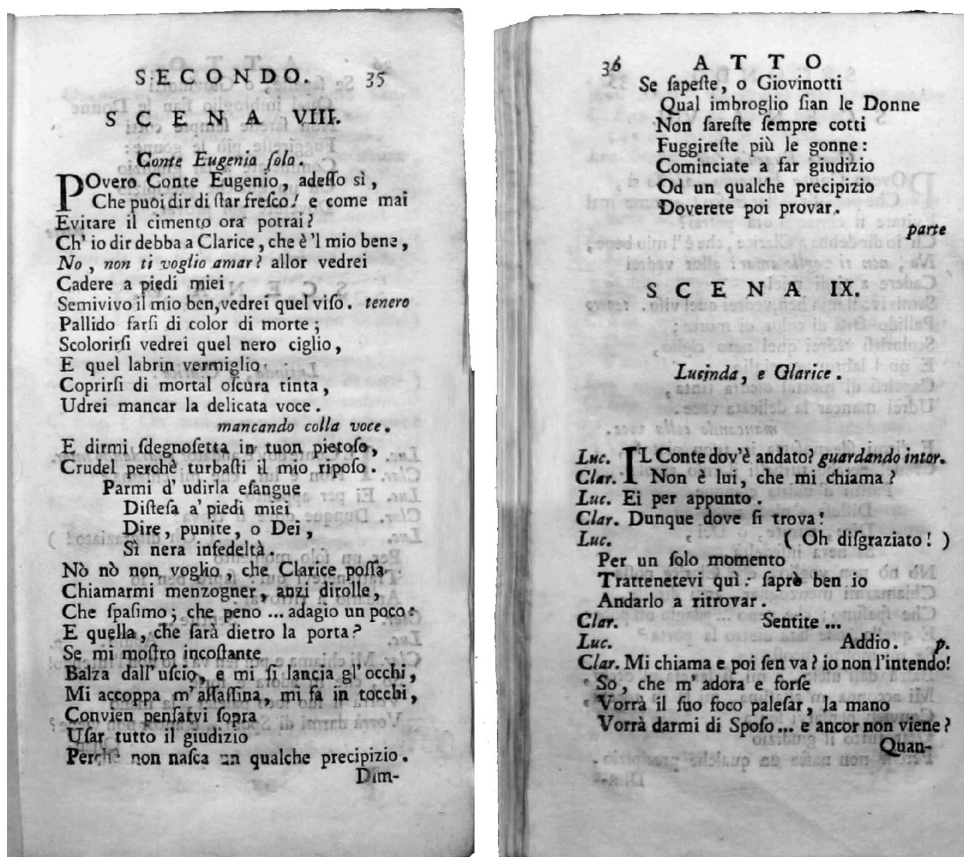 SECONDO. 35
SCENA VIII.
Conte Eugenio ſolo.
POvero Conte Eugenio, adeſſo sì,
Che puoi dir di ſtar freſco! e come mai
Evitare il cimento ora potrai?
Ch' io dir debba a Clarice, che è 'l mio bene,
No, non ti voglio amar? allor vedrei
Cadere a piedi miei
Semivivo il mio ben, vedrei quel viſo. tenero
Pallido farſi di color di morte;
Scolorirſi vedrei quel nero ciglio,
E quel labrin vermiglio
Coprirſi di mortal oſcura tinta,
Udrei mancar la delicata voce.
mancando colla voce.
E dirmi ſdegnoſetta in tuon pietoſo,
Crudel perchè turbaſti il mio ripoſo.
Parmi d' udirla eſangue
Diſteſa a' piedi miei
Dire, punite, o Dei,
Sì nera infedeltà.
Nò nò non voglio, che Clarice poſſa
Chiamarmi menzogner, anzi dirolle,
Che ſpaſimo; che peno ... adagio un poco:
E quella, che ſarà dietro la porta?
Se mi moſtro incoſtante
Balza dall' uſcio, e mi ſi lancia gl' occhi,
Mi accoppa m' aſſaſſina, mi fa in tocchi,
Convien penſatvi ſopra
Uſar tutto il giudizio
Perchè non naſca un qualche precipizio.
Dim-
36 ATTO
Se ſapeſte, o Giovinotti
Qual imbroglio ſian le Donne
Non ſareſte ſempre cotti
Fuggireſte più le gonne:
Cominciate a far giudizio
Od un qualche precipizio
Doverete poi provar.
parte
SCENA IX.
Lucinda, e Clarice.
Luc. IL Conte dov'è andato? guardando intor.
Clar. Non è lui, che mi chiama?
Luc. Ei per appunto.
Clar. Dunque dove ſi trova!
Luc. ( Oh diſgraziato! )
Per un ſolo momento
Trattenetevi quì: ſaprò ben io
Andarlo a ritrovar.
Clar. Sentite ...
Luc. Addio. p.
Clar. Mi chiama e poi ſen va? io non l'intendo!
So, che m' adora e forſe
Vorrà il ſuo foco paleſar, la mano
Vorrà darmi di Spoſo ... e ancor non viene?
Quan-